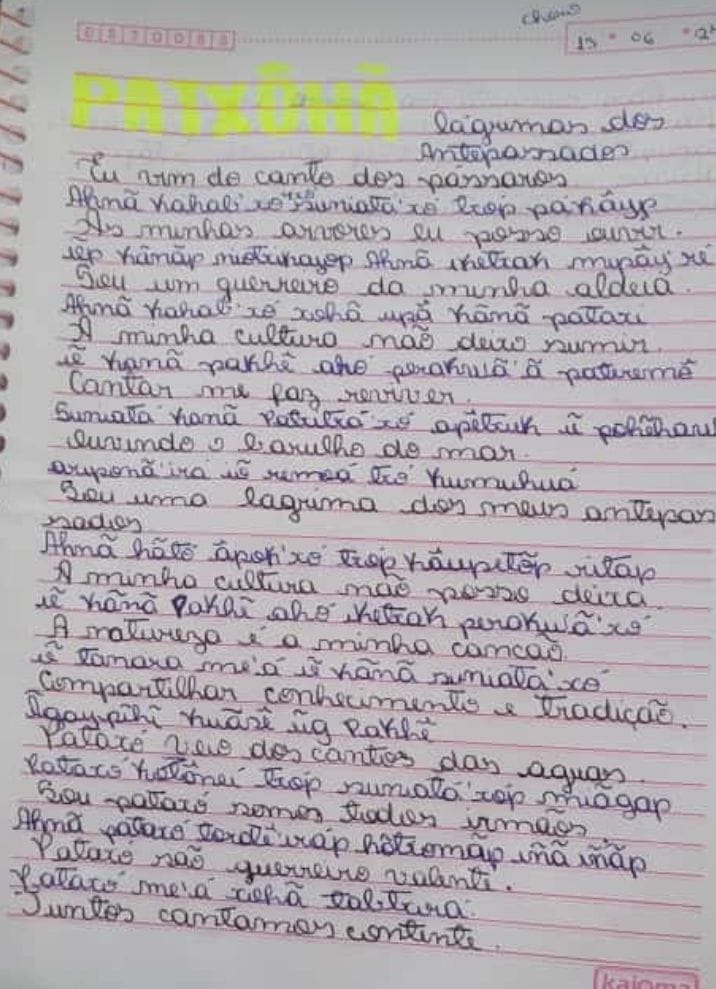 choro
13 06 24
PATXÔHÃ lágrimas dos
antepassados
Eu vim do canto dos pássaros
Ahnã kahab'xó suniatá'xó trop pahâyp
As minhas arvores eu posso ouvir.
iẽp hãnãp miotuhayop Ahnã mupây'ré
Sou um guerreiro da minha aldeia.
Ahnã kahab'xó xohã upâ hãnã pataxi
A minha cultura não deixo sumir.
iẽ hanã pakhê ahó perahuã'ã pataremã
Cantar me faz reviver.
Suniatá hanã apêtxuh ũ
ouvindo o barulho do mar.
aruponã'irá iẽ txó humuhuá
Sou uma lagrima dos meus antepas
sados
Ahnã hãtö âpoh'xó trop
A minha cultura não posso deixa.
iẽ hãnã Pakhê ahó perahuã'xó
A natureza é a minha canção
iẽ tanara me'á iẽ hãnã suniatá'xó
Compartilhar conhecimento e tradição.
ũg Pakhê
Pataxó veio dos cantos das aguas.
Pataxó hotõnei trop suniatá'xop miãgap
Sou pataxó somos todos irmãos
Ahnã pataxó hõtxomãp iñã iñãp
Pataxó são guerreiro valente.
Pataxó me'á xohã
Juntos cantamos contente.
kajoma